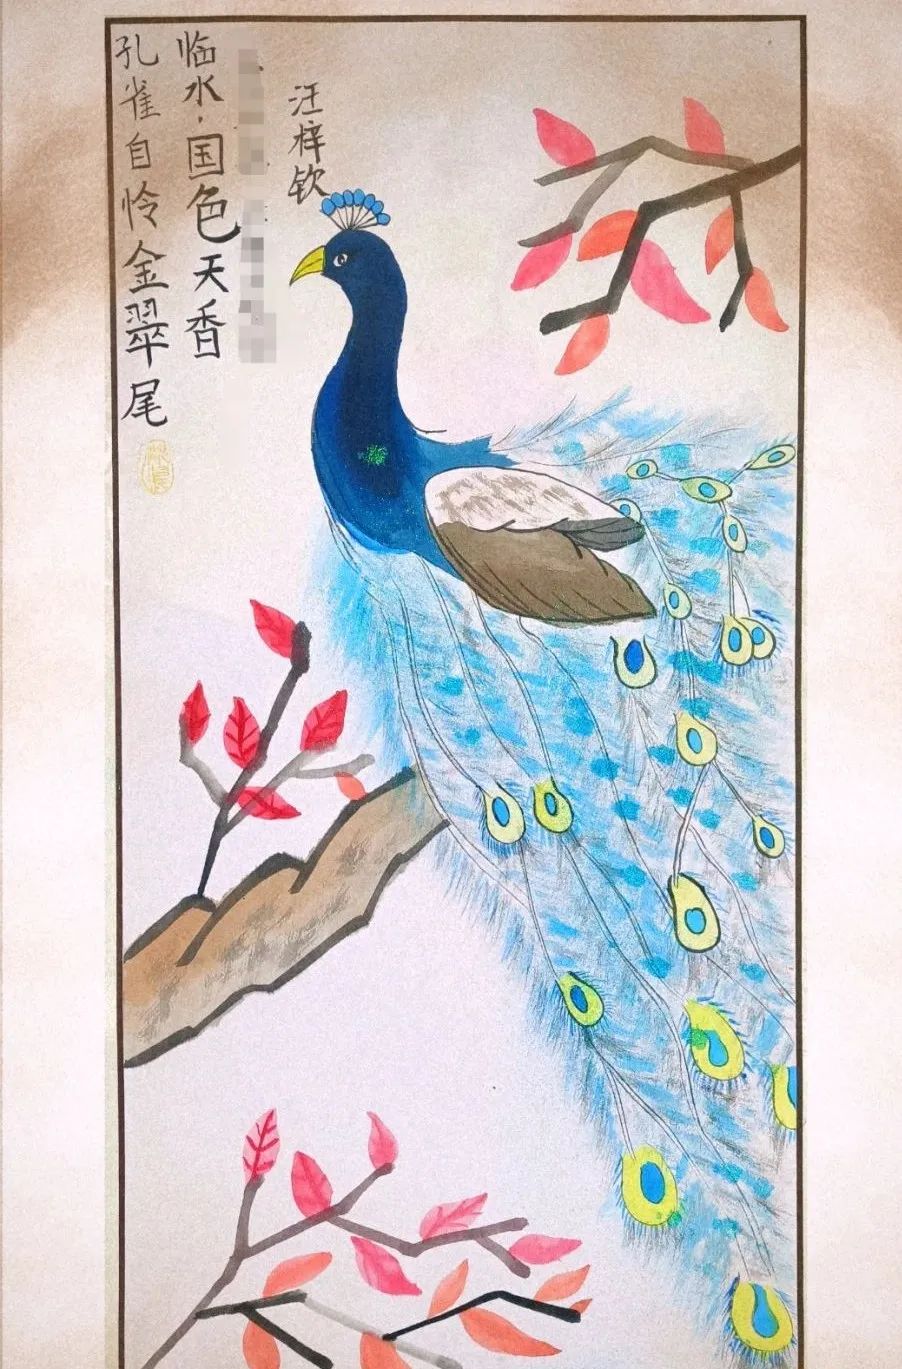 孔雀自怜金翠尾
临水·国色天香
汪梓钦